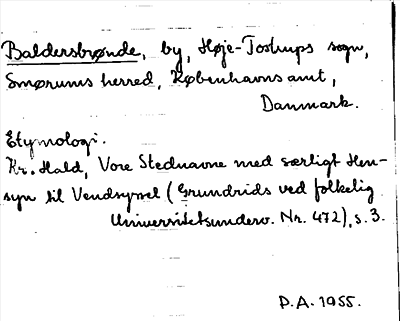 Baldersbrønde, by, Høje-Tostrups sogn,
Smørums herred, Københavns amt,
Danmark.
Etymologi.
Kr. Hald, Vore Stednavne med særligt Hen-
syn til Vendsyssel (Grundrids ved folkelig
Universitetsunderv. Nr. 472), s. 3.
P.A. 1955.